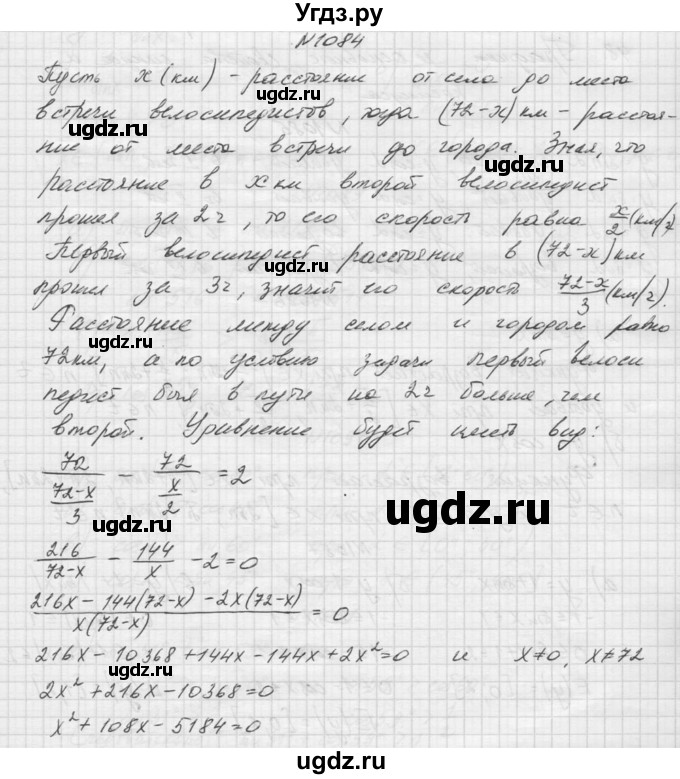 Угдз.ру
N1084
Пусть x (км) - расстояние от села до места
встречи велосипедистов, тогда (72-x) км - расстоя-
ugdz.ru
ugdz.ru
ние от места встречи до города. Зная, что
расстояние в x км второй велосипедист
ugdz.ru
прошел за 2ч, то его скорость равна x/2 (км/ч)
Первый велосипедист расстояние в (72-x) км
ugdz.ru
прошел за 3ч, значит его скорость (72-x)/3 (км/ч).
Расстояние между селом и городом равно
72км, а по условию задачи первый велоси
ugdz.ru
ugdz.ru
педист был в пути на 2ч больше, чем
второй. Уравнение будет иметь вид:
72/((72-x)/3) - 72/(x/2) = 2
ugdz.ru
ugdz.ru
216/(72-x) - 144/x - 2 = 0
(216x - 144(72-x) - 2x(72-x))/(x(72-x)) = 0
ugdz.ru
216x - 10368 + 144x - 144x + 2x² = 0 и x≠0, x≠72
2x² + 216x - 10368 = 0
ugdz.ru
ugdz.ru
x² + 108x - 5184 = 0
ugdz.ru